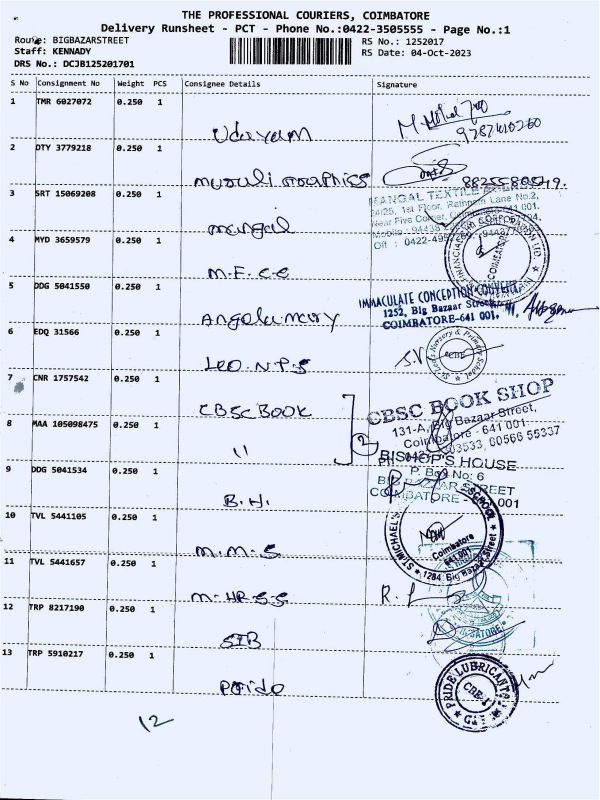 THE PROFESSIONAL COURIERS, COIMBATORE
Delivery Runsheet - PCT - Phone No.:0422-3505555 - Page No.:1
Route: BIGBAZARSTREET
Staff: KENNADY
DRS No.: DCJB125201701
RS No.: 1252017
RS Date: 04-Oct-2023
S No Consignment No Weight PCS Consignee Details Signature
1 TMR 6027072 0.250 1
Udayam
9787410260
2 DTY 3779218 0.250 1
3 SRT 15069208 0.250 1
MANGAL TEXTILE
24/25, 1st Floor, Rathnam Lane No.2,
Near Five Corner, 641 001.
Off : 0422-
mangal
4 MYD 3659579 0.250 1
M.F.C.O
5 DDG 5041550 0.250 1
IMMACULATE CONCEPTION CONVENT
1252, Big Bazaar Street
COIMBATORE-641 001.
Angela mary
6 EDQ 31566 0.250 1
Nursery & Primary School
CBE
LEO.N.P.S
7 CNR 1757542 0.250 1
CBSC BOOK
CBSC BOOK SHOP
131-A, Big Bazaar Street,
Coimbatore - 641 001.
8 MAA 105098475 0.250 1
"
2
BISHOP'S HOUSE
P. Box No: 6
BIG BAZAAR STREET
COIMBATORE - 641 001
9 DDG 5041534 0.250 1
B.H.
10 TVL 5441105 0.250 1
M.M.S
ST.MICHAEL'S
Coimbatore
641 001
1284, Big Bazaar Street
11 TVL 5441657 0.250 1
M.HR.S.S
12 TRP 8217190 0.250 1
13 TRP 5910217 0.250 1
PRIDE LUBRICANTS
CBE-1
Pride
12